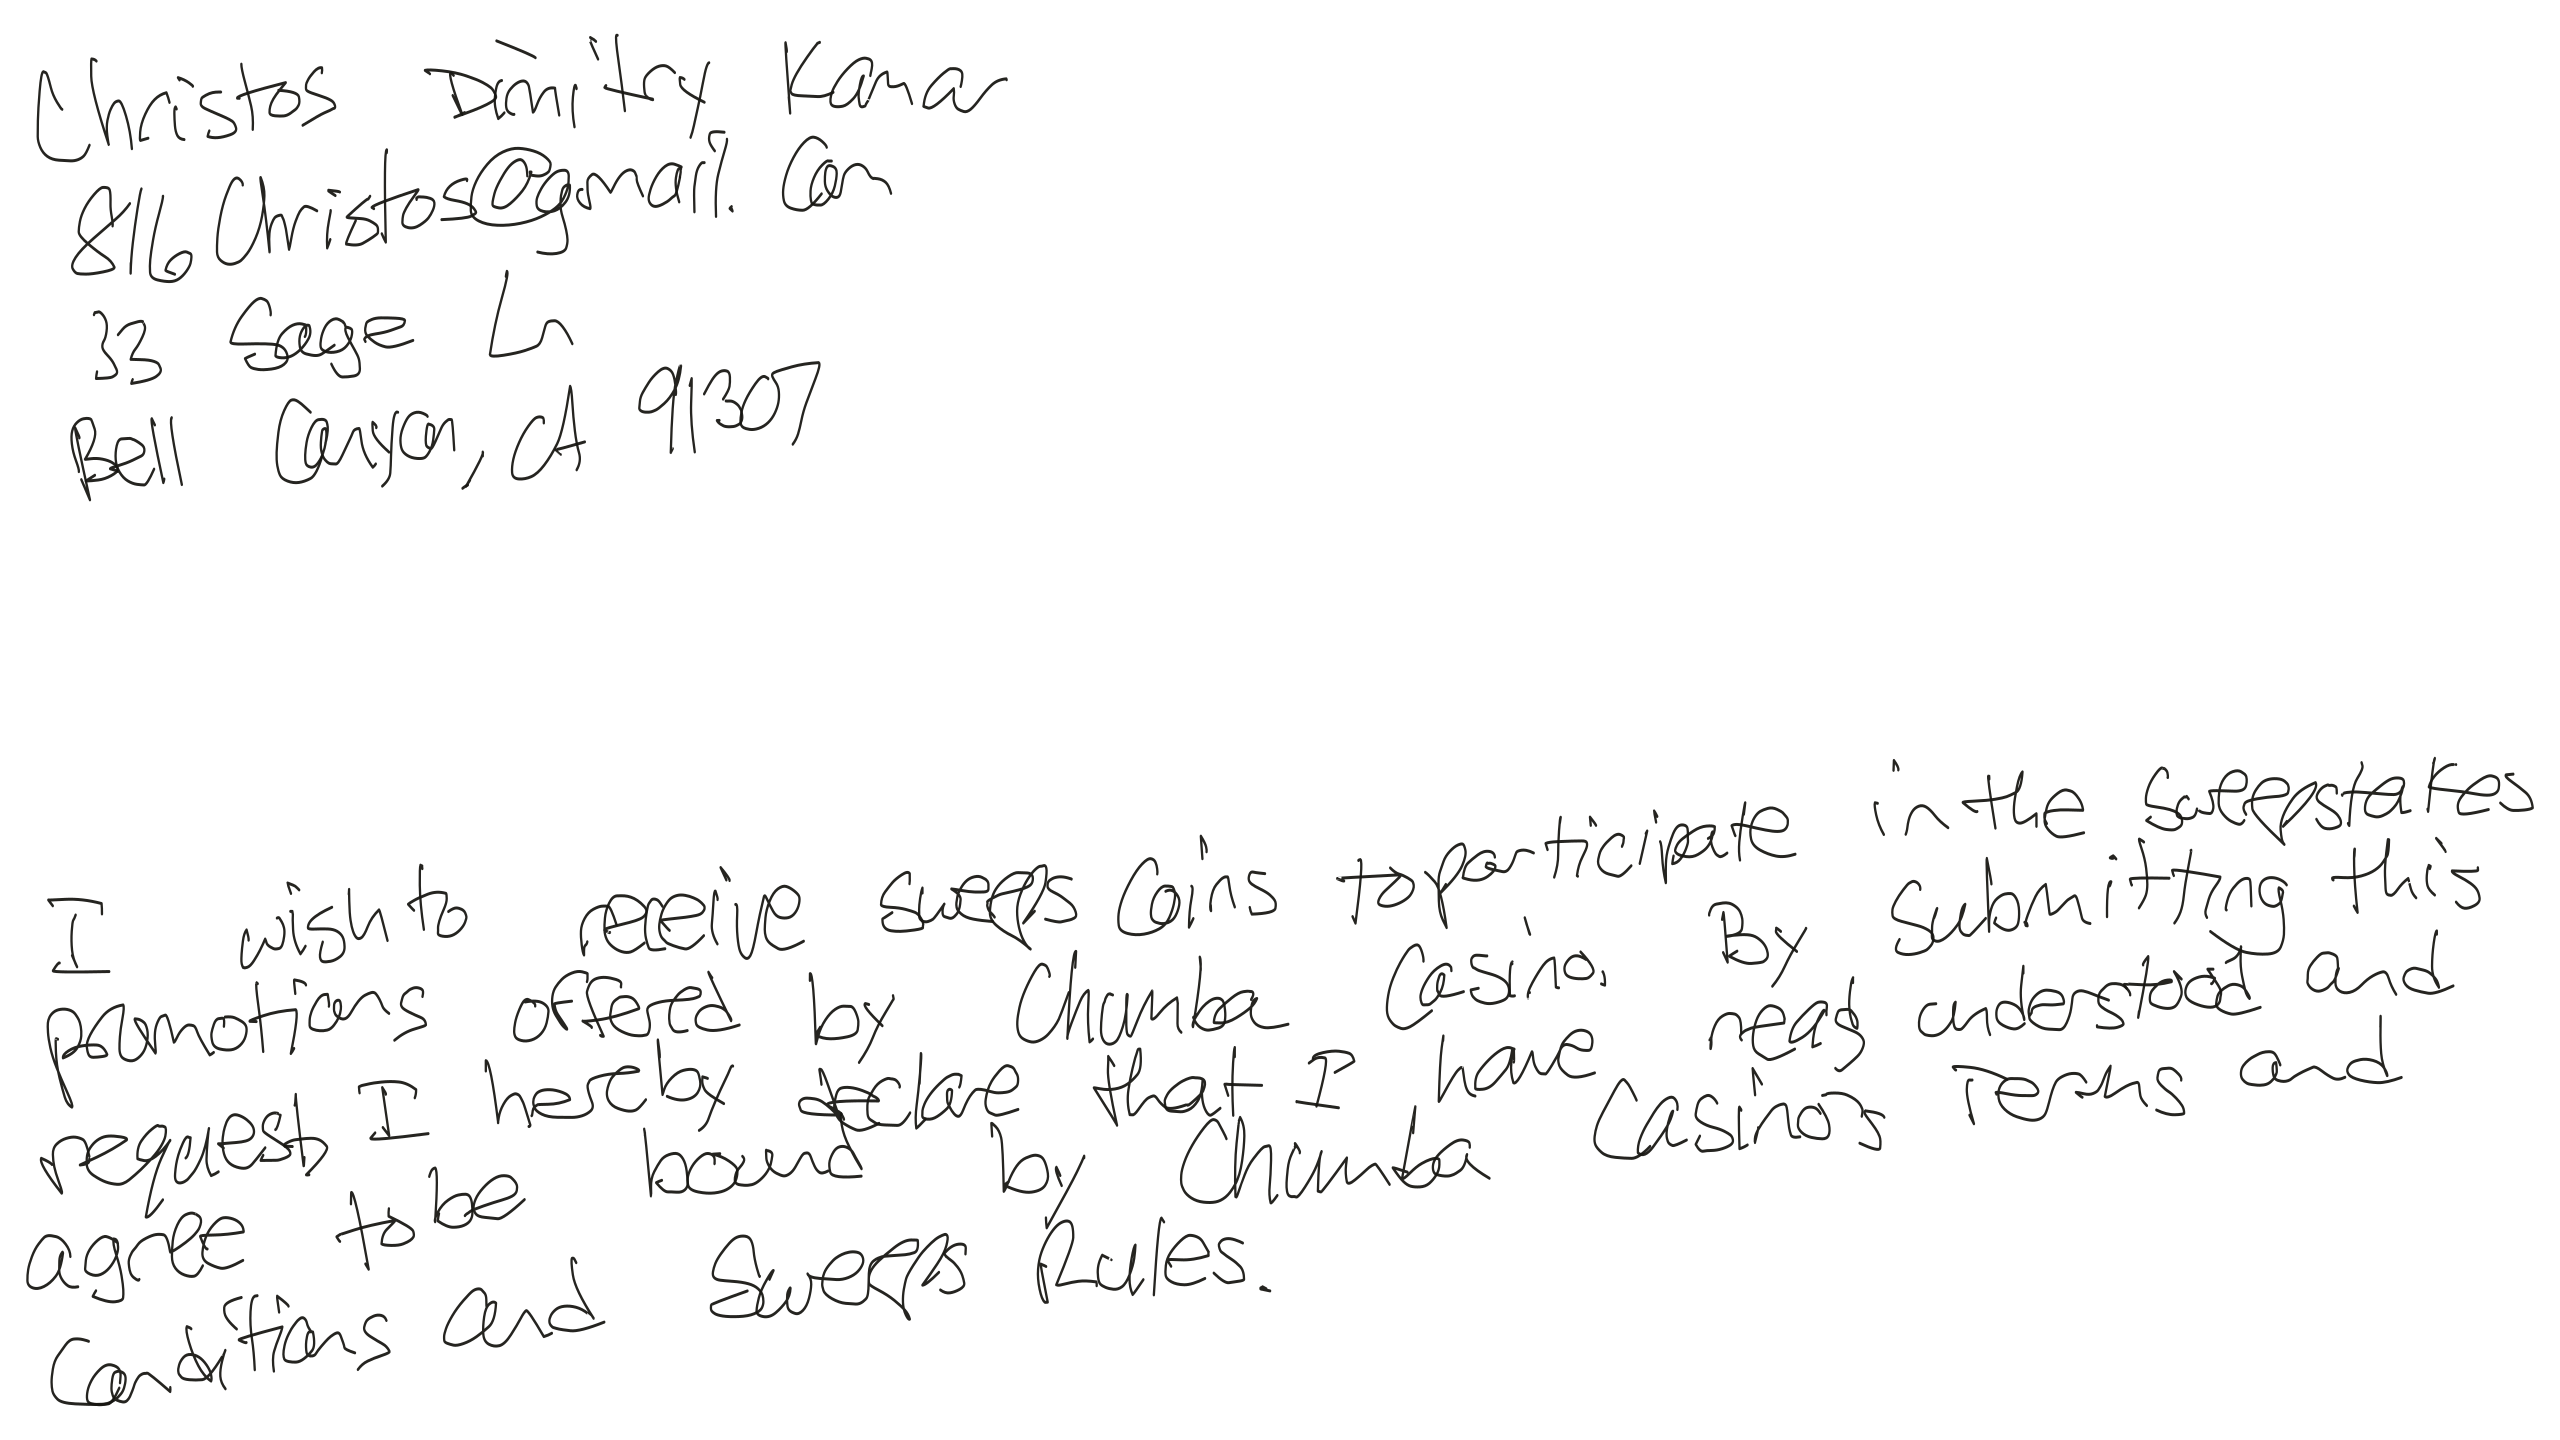 Christos Dimitry Kamar
816Christos@gmail.com
33 Sage Ln
Bell Canyon, CA 91307
I wish to receive sweeps coins to participate in the sweepstakes
promotions offered by Chumba Casino. By submitting this
request, I hereby declare that I have read, understood and
agree to be bound by Chumba Casino's Terms and
Conditions and Sweeps Rules.